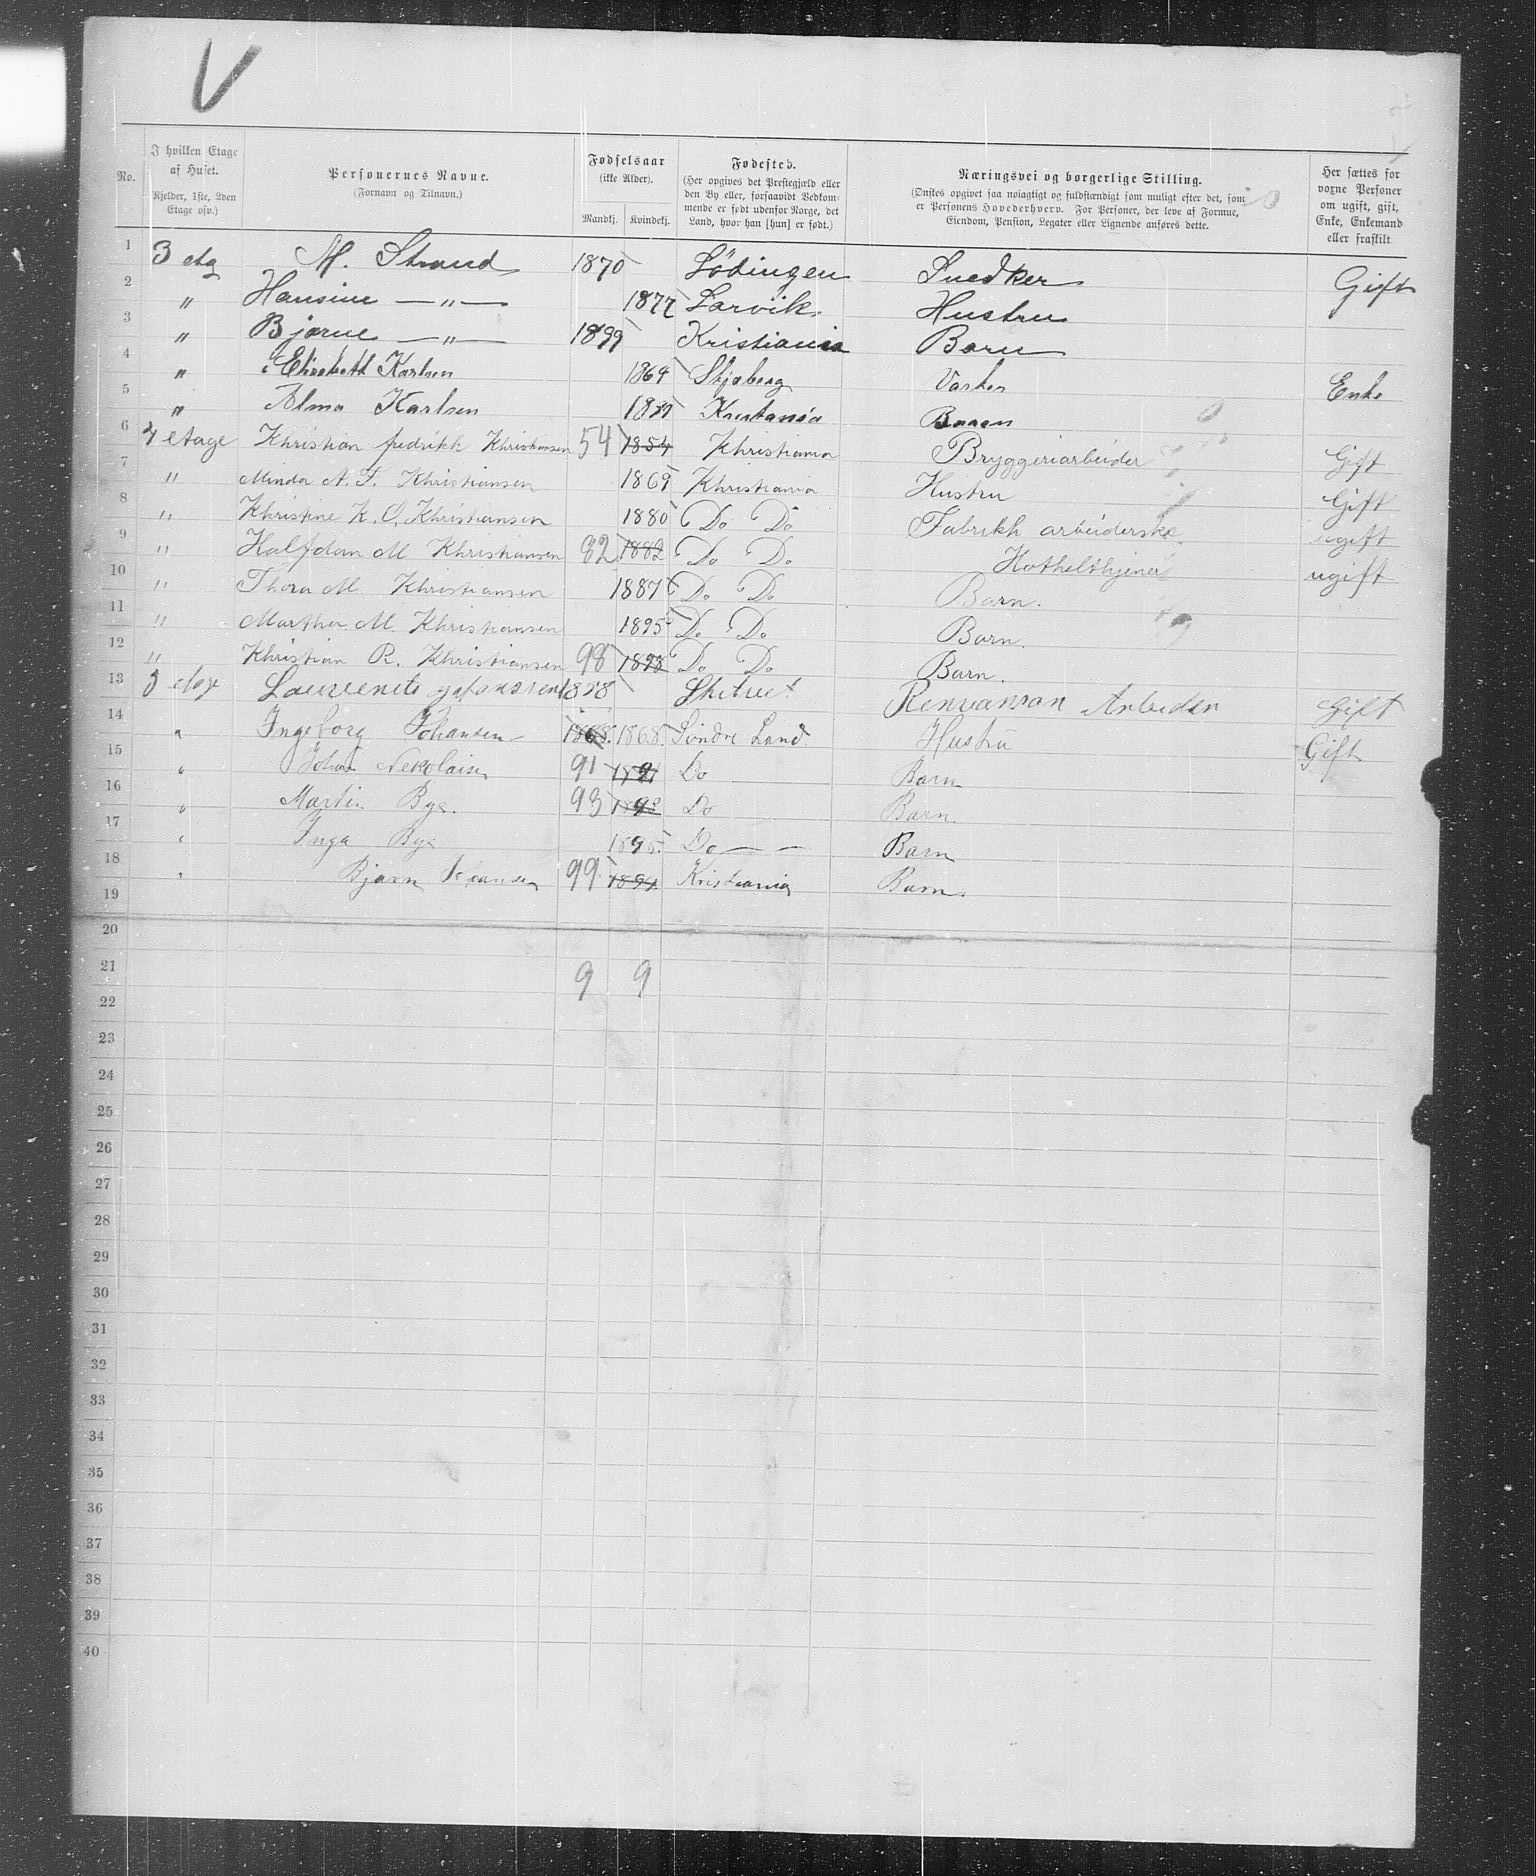 V
No. I hvilken Etage af Huset. (Kjelder, 1ste, 2den Etage osv.) Personernes Navne. (Fornavn og Tilnavn.) Fødselsaar (ikke Alder). Mandkj. Kvindekj. Fødested. (Her opgives det Prestegjæld eller den By eller, forsaavidt Vedkommende er født udenfor Norge, det Land, hvor han [hun] er født.) Næringsvei og borgerlige Stilling. (Ønskes opgivet saa nøiagtigt og fuldstændigt som muligt efter det, som er Personens Hovederhverv. For Personer, der leve af Formue, Eiendom, Pension, Legater eller Lignende anføres dette. Her sættes for voxne Personer om ugift, gift, Enke, Enkemand eller fraskilt
1 3 etg M. Strand 1870 Lödingen Snedker Gift
2 " Hansine —"— 1877 Larvik. Hustru
3 " Bjarne —"— 1899 Kristiania Barn
4 " Elisebeth Karlsen 1864 Skjeberg Vasker Enke
5 " Alma Karlsen Kristania Baren
6 4 etage Khristian fredrikh Khristiansen 54 1854 Khristiania Bryggeriarbeider Gift
7 " Minda A. F. Khristiansen 1869 Khristiania Hustru Gift
8 " Khristine K. O. Khristiansen 1880 Do Do Fabrikh arbeiderske ugift
9 " Halfdan M Khristiansen 82 1882 Do Do Hothelsthjener ugift
10 " Thora M. Khristiansen 1887 Do Do Barn.
11 " Martha. M. Khristiansen 1895 Do Do Barn.
12 " Khristian R. Khristiansen 98 1898 Do Do Barn.
13 3 etage 1858 Arbeider Gift
14 " Ingeborg Johansen 1868. 1868. Söndre Land. Hustru Gift
15 " Johan Nikolaisen 91 1891 Do Barn
16 " Martin Bye. 93 1893 Do Barn.
17 " Inga Bye 1895. Do — — Barn
18 " Bjarn Johansen 99 1899. Kristiania Barn.
19
20
21 9 9
22
23
24
25
26
27
28
29
30
31
32
33
34
35
36
37
38
39
40